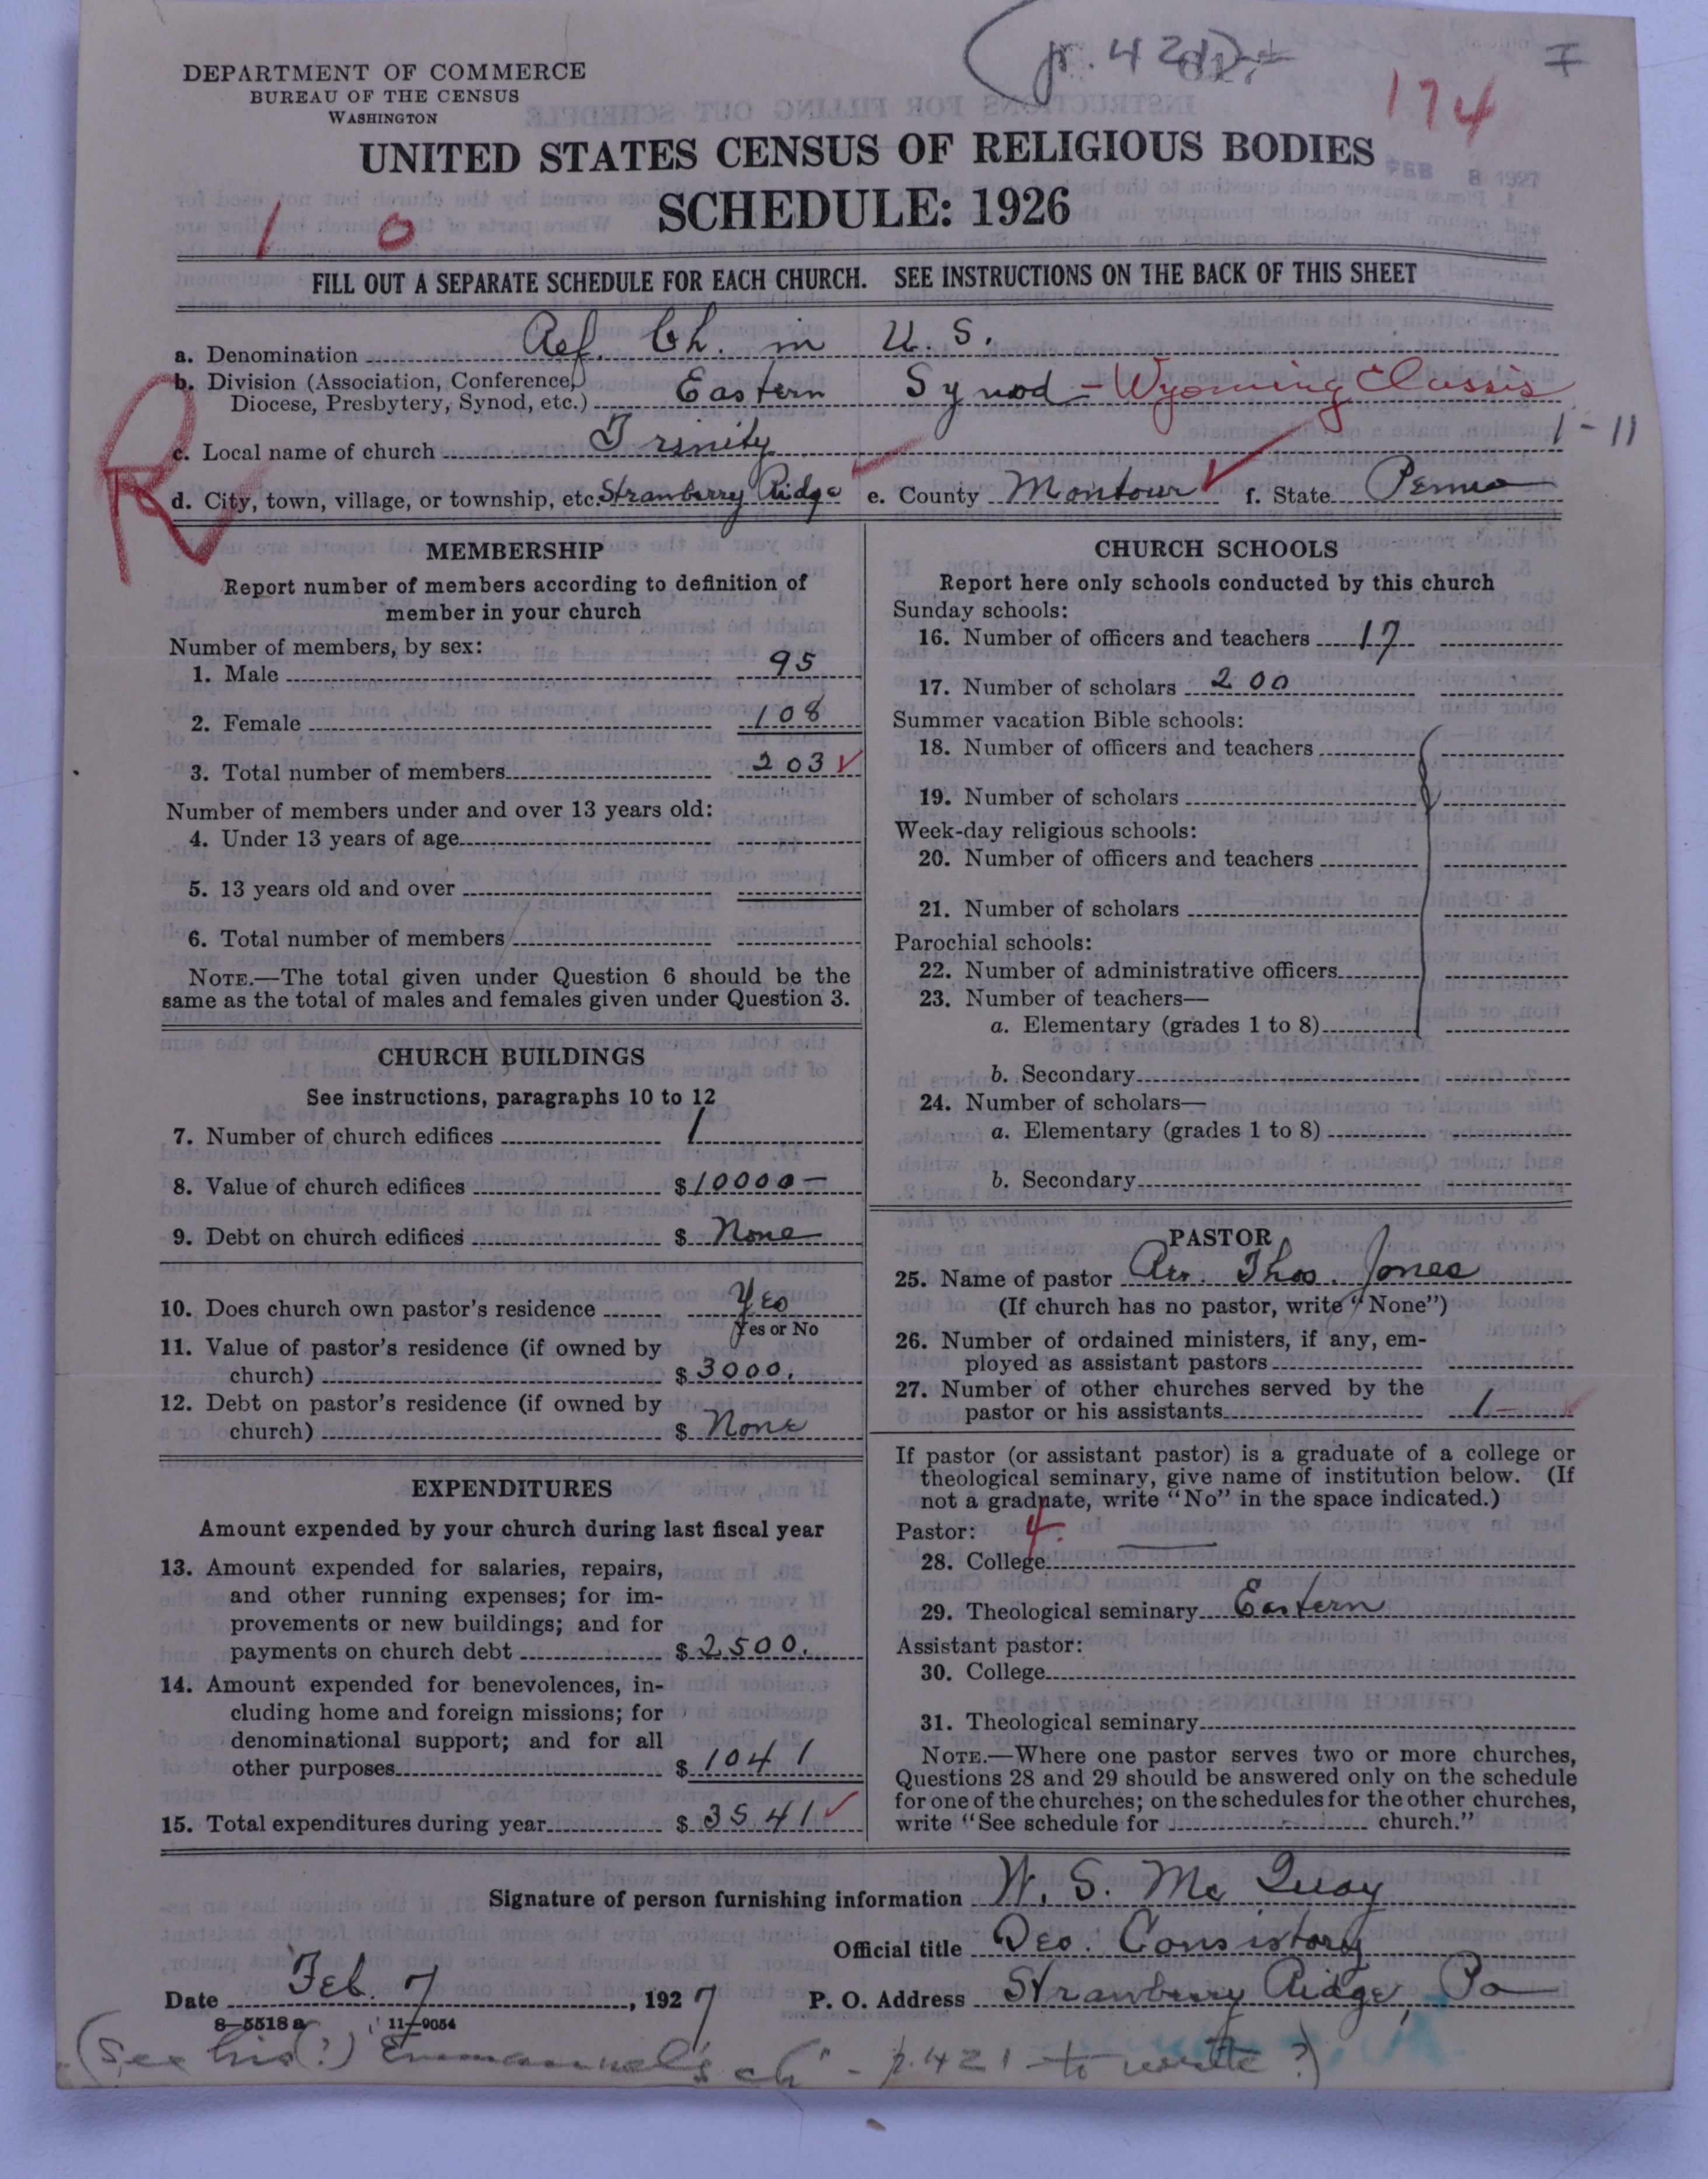 (p. 421)
174
DEPARTMENT OF COMMERCE
BUREAU OF THE CENSUS
WASHINGTON
UNITED STATES CENSUS OF RELIGIOUS BODIES
FEB 8 1927
SCHEDULE: 1926
1 0
FILL OUT A SEPARATE SCHEDULE FOR EACH CHURCH. SEE INSTRUCTIONS ON THE BACK OF THIS SHEET
a. Denomination Ref. Ch. in U. S.
b. Division (Association, Conference, Diocese, Presbytery, Synod, etc.) Eastern Synod - Wyoming Classis
R
1-11
c. Local name of church Trinity
d. City, town, village, or township, etc. Strawberry Ridge e. County Montour f. State Penna
MEMBERSHIP
Report number of members according to definition of
member in your church
Number of members, by sex:
1. Male 95
2. Female 108
3. Total number of members 203
Number of members under and over 13 years old:
4. Under 13 years of age
5. 13 years old and over
6. Total number of members
NOTE.—The total given under Question 6 should be the
same as the total of males and females given under Question 3.
CHURCH BUILDINGS
See instructions, paragraphs 10 to 12
7. Number of church edifices 1
8. Value of church edifices $10000-
9. Debt on church edifices $ None
10. Does church own pastor's residence Yes
Yes or No
11. Value of pastor's residence (if owned by
church) $3000.
12. Debt on pastor's residence (if owned by
church) $ None
EXPENDITURES
Amount expended by your church during last fiscal year
13. Amount expended for salaries, repairs,
and other running expenses; for im-
provements or new buildings; and for
payments on church debt $2500.
14. Amount expended for benevolences, in-
cluding home and foreign missions; for
denominational support; and for all
other purposes $1041
15. Total expenditures during year $3541
CHURCH SCHOOLS
Report here only schools conducted by this church
Sunday schools:
16. Number of officers and teachers 17
17. Number of scholars 200
Summer vacation Bible schools:
18. Number of officers and teachers
19. Number of scholars
Week-day religious schools:
20. Number of officers and teachers
21. Number of scholars
Parochial schools:
22. Number of administrative officers
23. Number of teachers—
a. Elementary (grades 1 to 8)
b. Secondary
24. Number of scholars—
a. Elementary (grades 1 to 8)
b. Secondary
PASTOR
25. Name of pastor Rev. Thos. Jones
(If church has no pastor, write "None")
26. Number of ordained ministers, if any, em-
ployed as assistant pastors
27. Number of other churches served by the
pastor or his assistants 1
If pastor (or assistant pastor) is a graduate of a college or
theological seminary, give name of institution below. (If
not a graduate, write "No" in the space indicated.)
Pastor: 4
28. College
29. Theological seminary Eastern
Assistant pastor:
30. College
31. Theological seminary
NOTE.—Where one pastor serves two or more churches,
Questions 28 and 29 should be answered only on the schedule
for one of the churches; on the schedules for the other churches,
write "See schedule for church."
Signature of person furnishing information W. S. Mc Quay
Official title Consistory
Date Feb. 7, 1927 P. O. Address Strawberry Ridge, Pa
8—5518 a 11—9054
(See his(?) Emmanuel's ch - p.421 to write?)